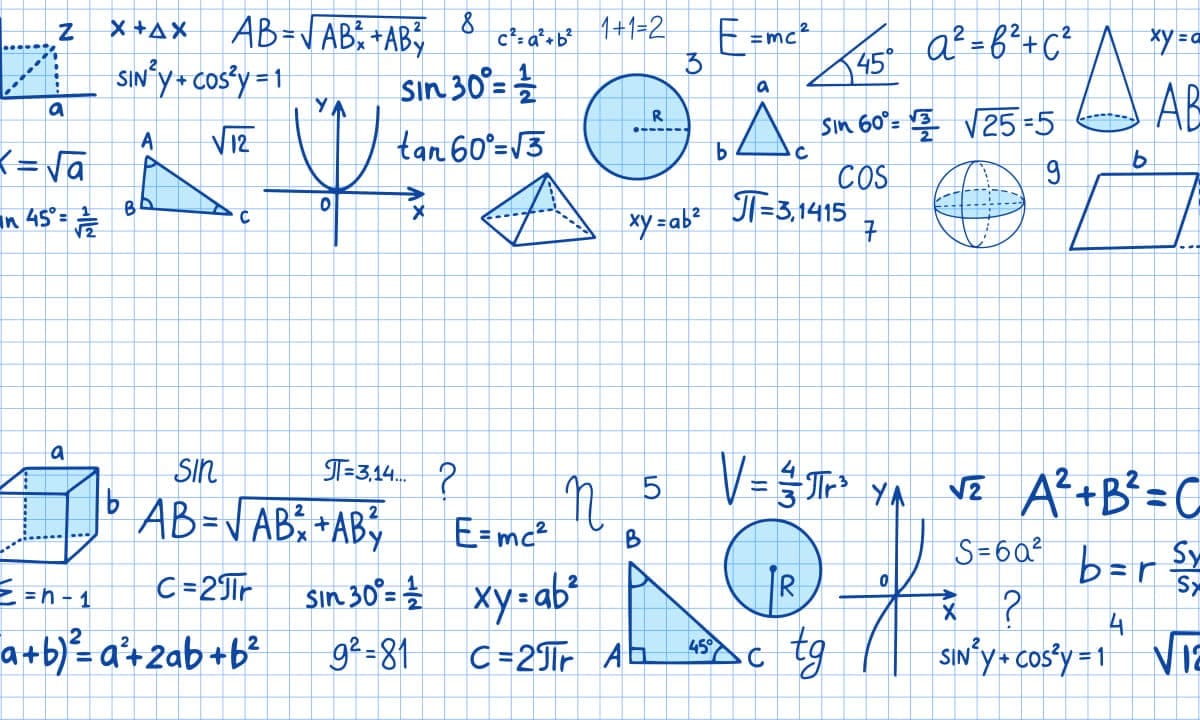 z x+Δx AB=√AB²ₓ+AB²ᵧ 8 c²=a²+b² 1+1=2 E=mc² a²=b²+c² xy=a
3 45°
sin²y+cos²y=1 sin 30°=1/2 a
a y R sin 60°=√3/2 √25=5 AB
A √12 tan 60°=√3 b c
x=√a cos 9 b
in 45°=1/√2 B c 0 x xy=ab² π=3,1415 7
a sin π=3,14... ? n 5 V=4/3πr³ y √2 A²+B²=C
b AB=√AB²ₓ+AB²ᵧ E=mc² B S=6a² b=r Sy/Sx
Σ=n-1 C=2πr sin 30°=1/2 xy=ab² R 0 x ? 4
a+b)²=a²+2ab+b² 9²=81 C=2πr A 45° c tg sin²y+cos²y=1 √12